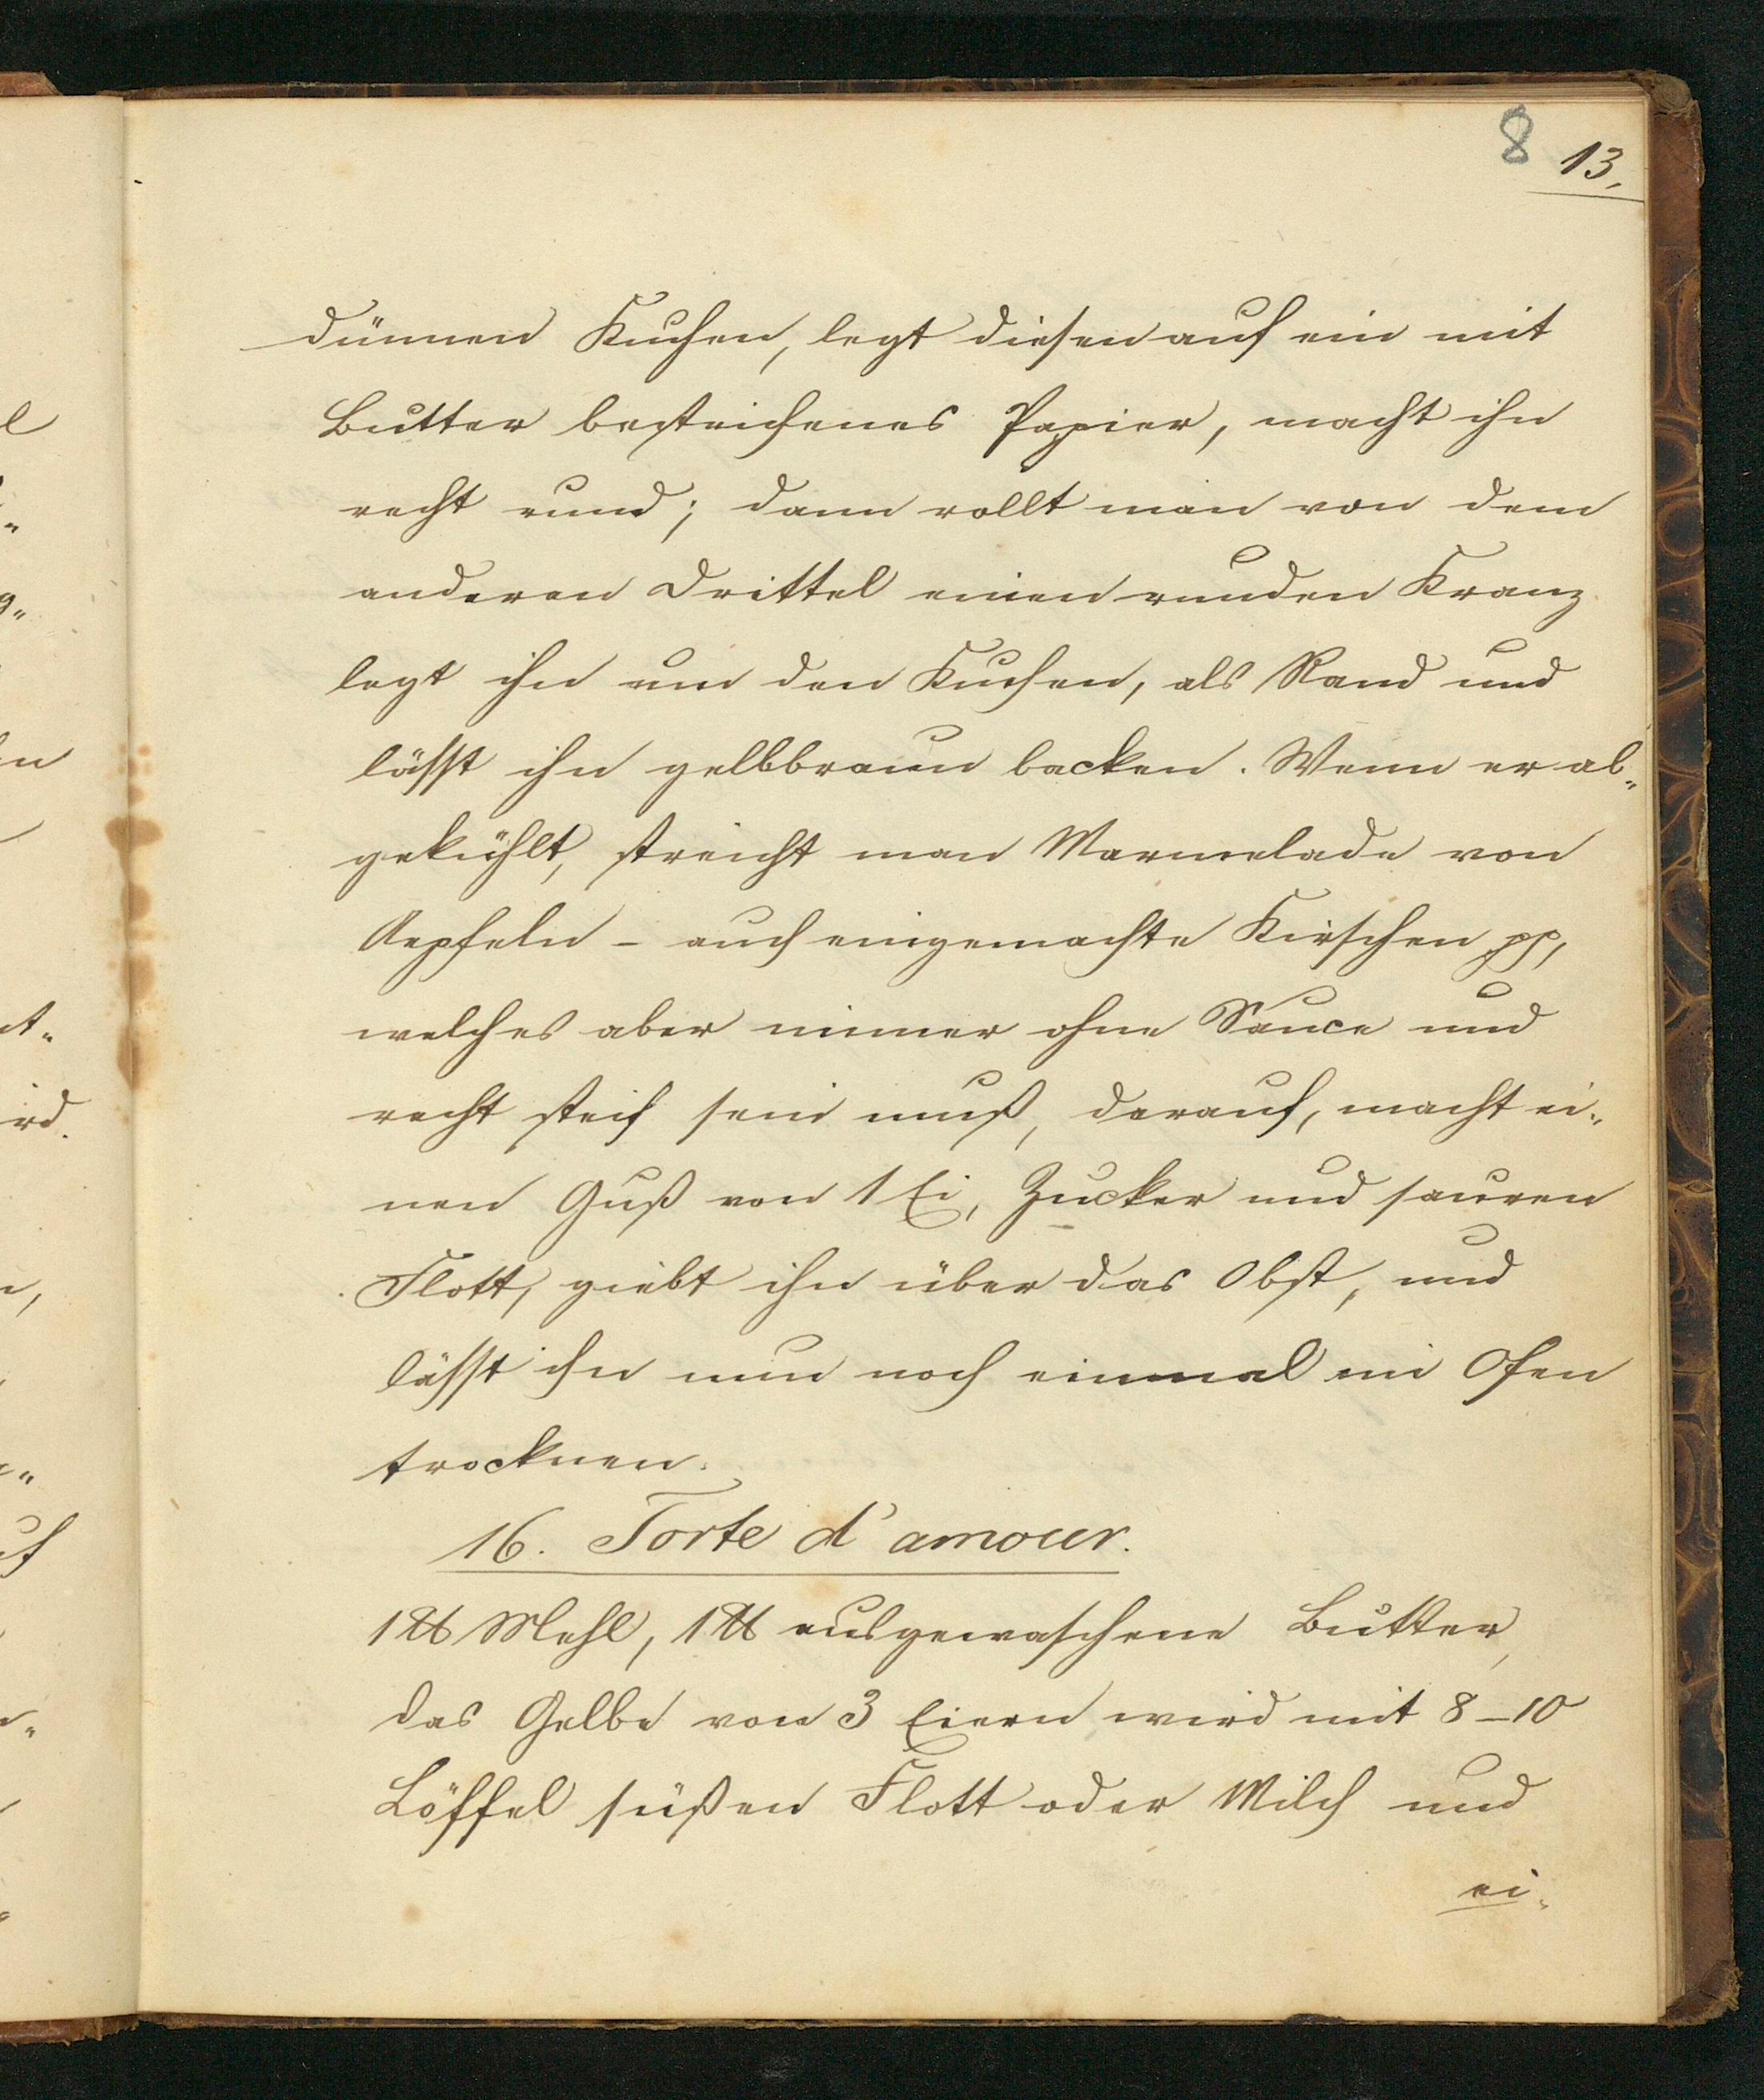 8 13.
dünnen Kuchen, legt diesen auf ein mit
Butter bestrichenes Papier, macht ihn
recht rund; dann rollt man von dem
anderen Drittel einen runden Kranz
legt ihn um den Kuchen, als Rand und
läßt ihn gelbbraun backen. Wenn er ab„
gekühlt, streicht man Marmelade von
Aepfeln - auch eingemachte Kirschen pp,
welches aber immer ohne Sauce und
recht steif sein muß, darauf, macht ei„
nen Guß von 1 Ei, Zucker und sauren
Flott, giebt ihn über das Obst, und
läßt ihn nun noch einmal im Ofen
trocknen.
16. Torte d'amour.
1 ℔ Mehl, 1 ℔ ausgewaschene Butter,
das Gelbe von 3 Eiern wird mit 8-10
Löffel süßen Flott oder Milch und
ei„